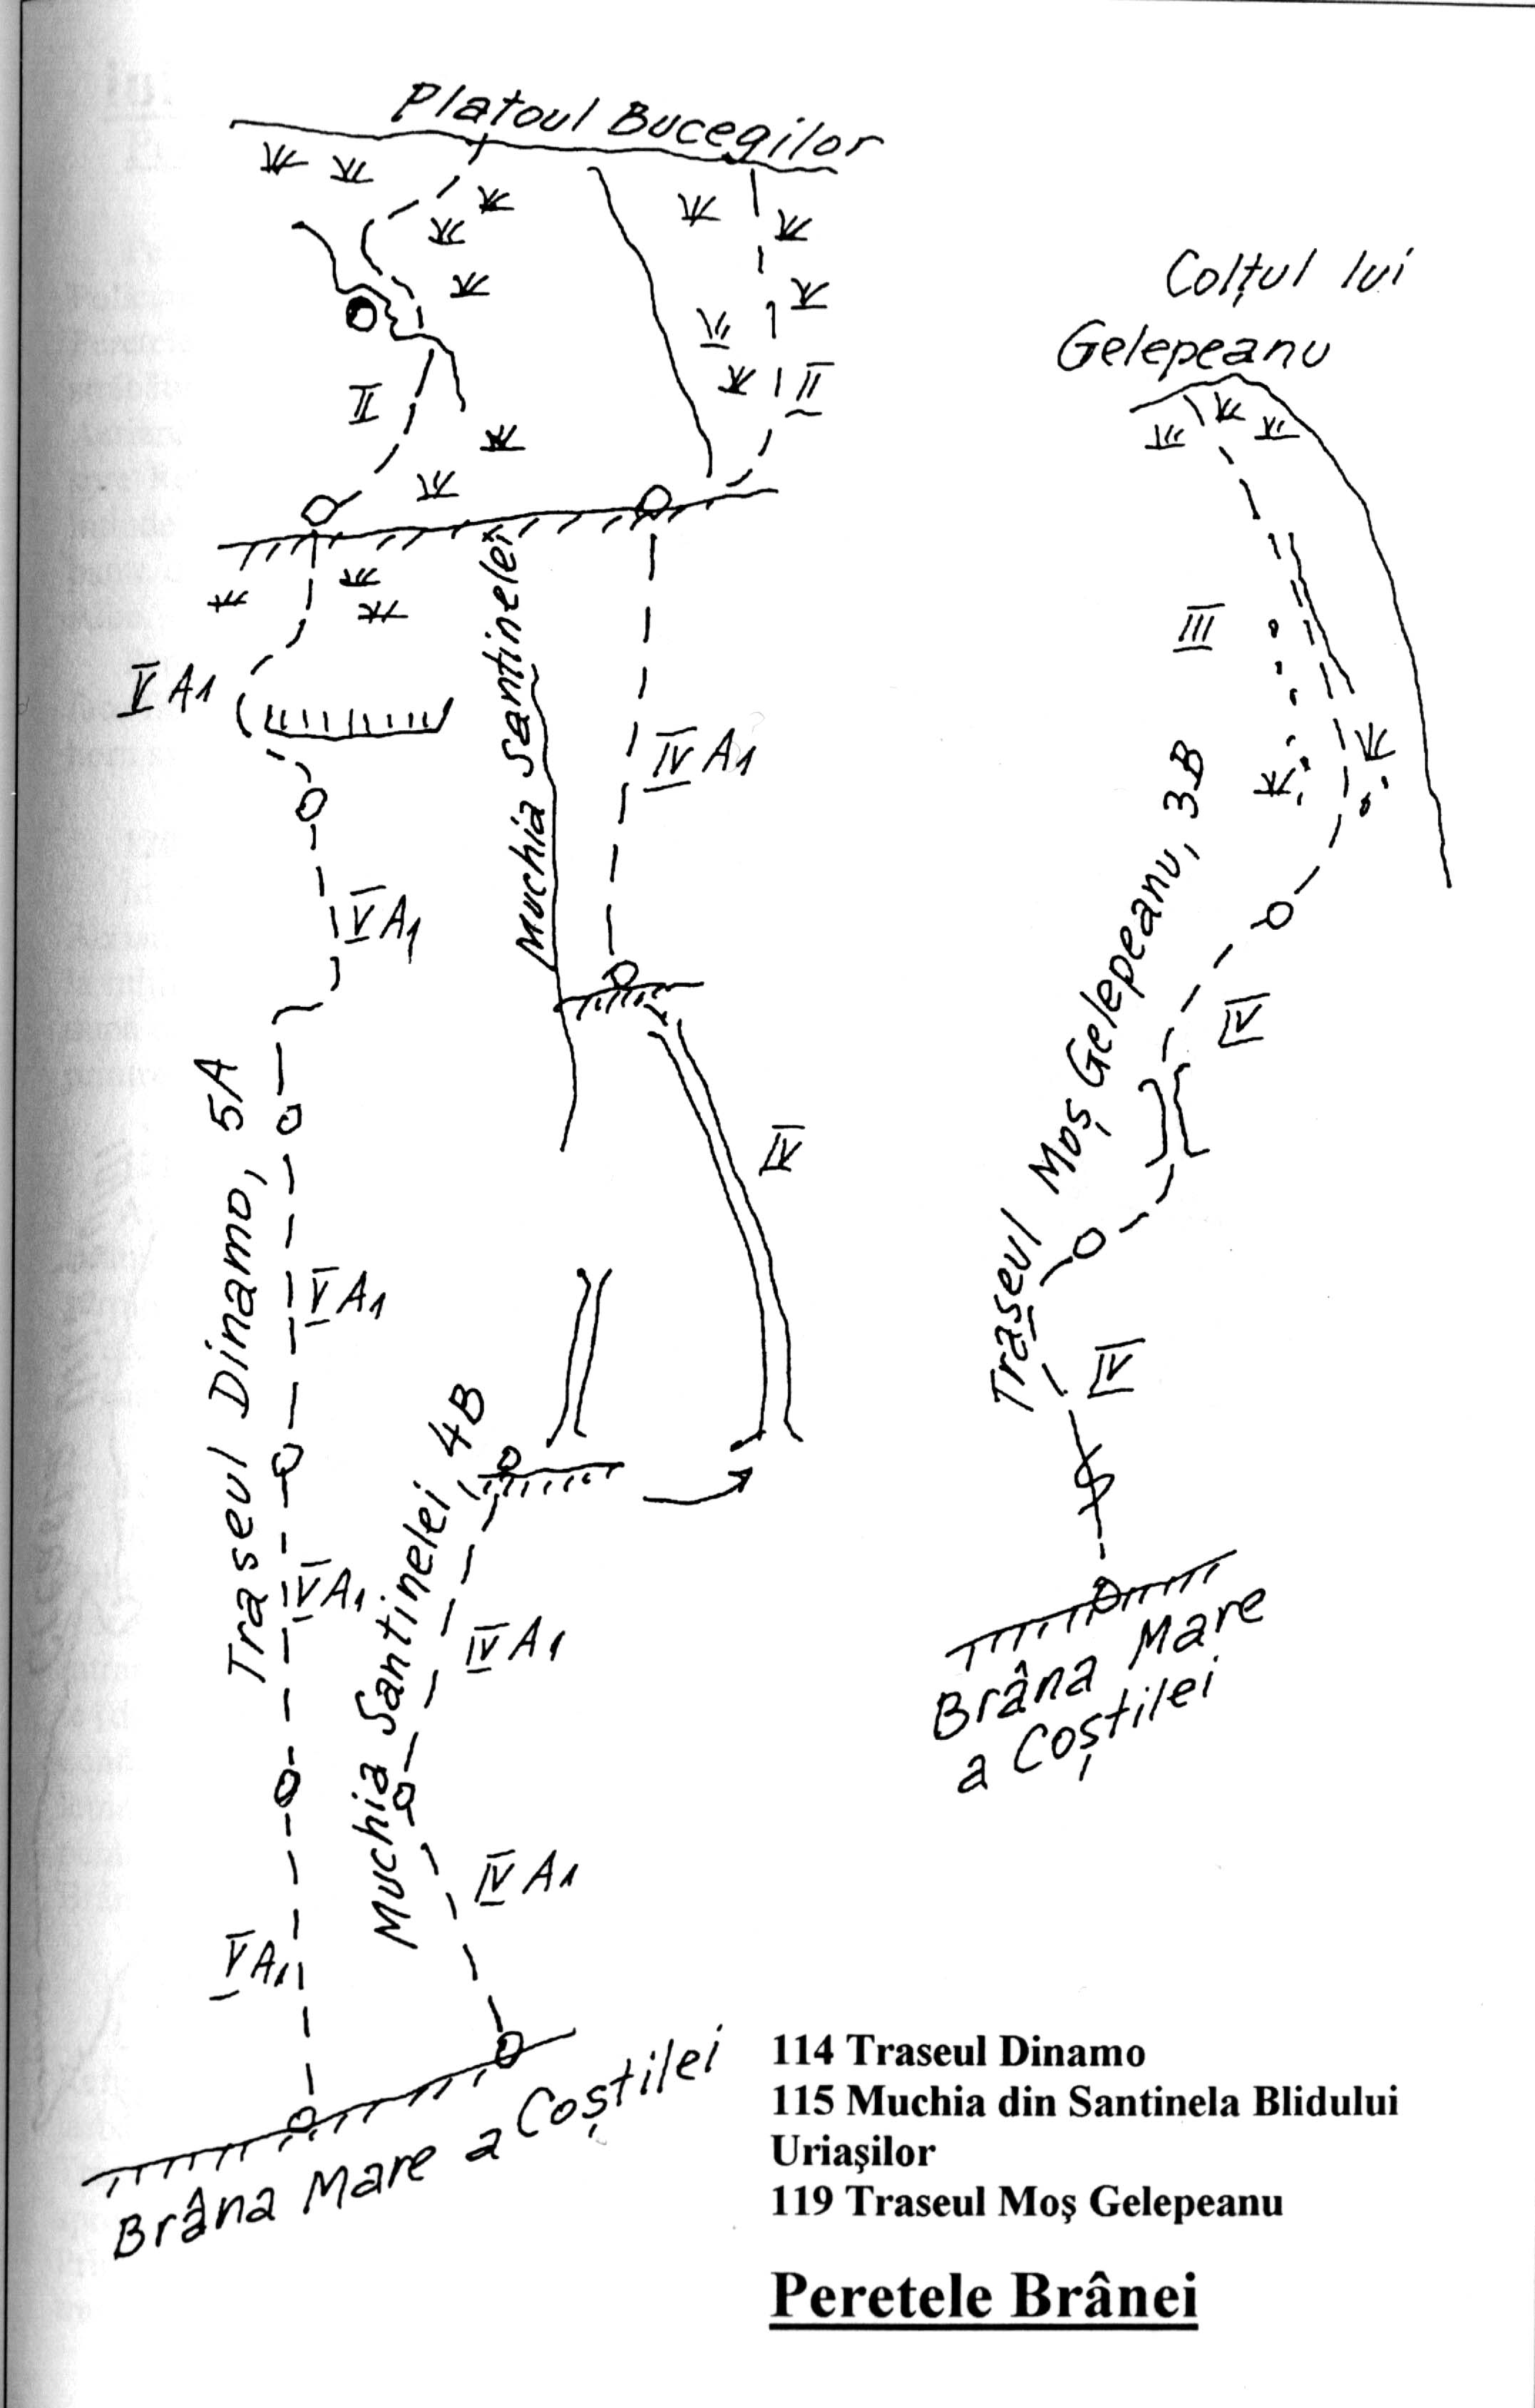 Platoul Bucegilor
II
II
V A1
Muchia Santinelei
IV A1
V A1
Traseul Dinamo, 5A
IV
V A1
Muchia Santinelei 4B
V A1
IV A1
IV A1
V A1
Brâna Mare a Coștilei
Colțul lui
Gelepeanu
III
Traseul Moș Gelepeanu, 3B
IV
IV
Brâna Mare
a Coștilei
114 Traseul Dinamo
115 Muchia din Santinela Blidului
Uriaşilor
119 Traseul Moş Gelepeanu
Peretele Brânei